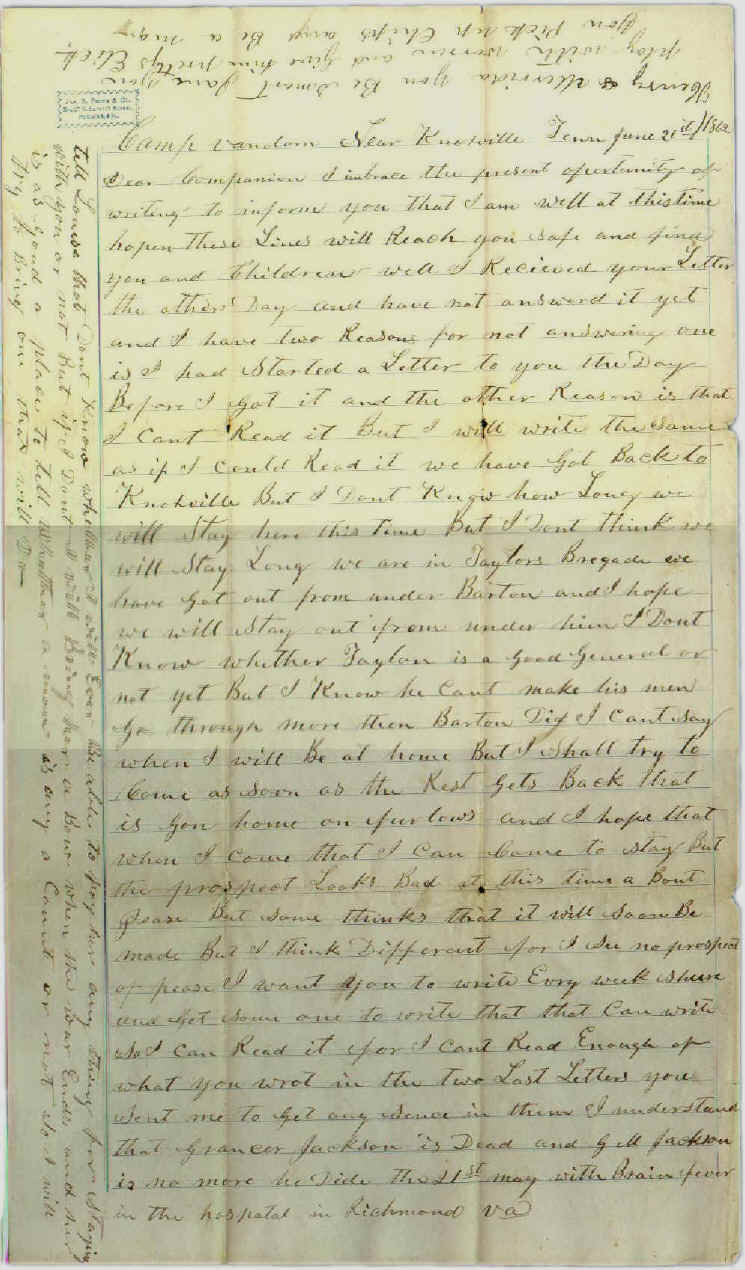 Camp Vandorn Near Knoxville Tenn June 21st / 1862
Dear Companion I imbrace the present opertunity of
writing to inform you that I am well at this time
hopen these Lines will Reach you safe and find
you and Children well I Recieved your Letter
the other Day and have not answerd it yet
and I have two Reasons for not answering one
is I had Started a Letter to you the Day
Before I got it and the other Reason is that
I Cant Read it But I will write the same
as if I could Read it we have Got Back to
Knoxville But I Dont Know how Long we
will Stay here this time But I Dont think we
will Stay Long we are in Taylors Bregade we
have Got out from under Barton and I hope
we will Stay out from under him I Dont
Know whether Taylor is a Good General or
not yet But I Know he Cant make his men
Go through more then Barton Did I Cant Say
when I will Be at home But I Shall try to
Come as Soon as the Rest Gets Back that
is Gon home on furlows and I hope that
when I come that I Can Come to stay But
the prospect Looks Bad at this time a Bout
pease But some thinks that it will Soon Be
made But I think Different for I See no prospect
of pease I want you to write Evry week shure
and Get some one to write that that Can write
So I Can Read it for I Cant Read Enough of
what you wrot in the two Last Letters you
Sent me to Get any sence in them I understand
that Grancer Jackson is Dead and Gill Jackson
is no more he Dide the 21st may with Brain fever
in the hospetal in Richmond Va
tell Louisa that Dont Know whether I will Ever Be able to pay her any thing for staying
with you or not But if I Dont I will Bring her a Bone when the war Ends and her
is as Good a place to tell whether a man is any a Count or not So I will
try to Bring one that will Do
Henry & Merrida you Be Smart Jane you
play with and Give him pretys Elick
you pick up Chips and Be a man